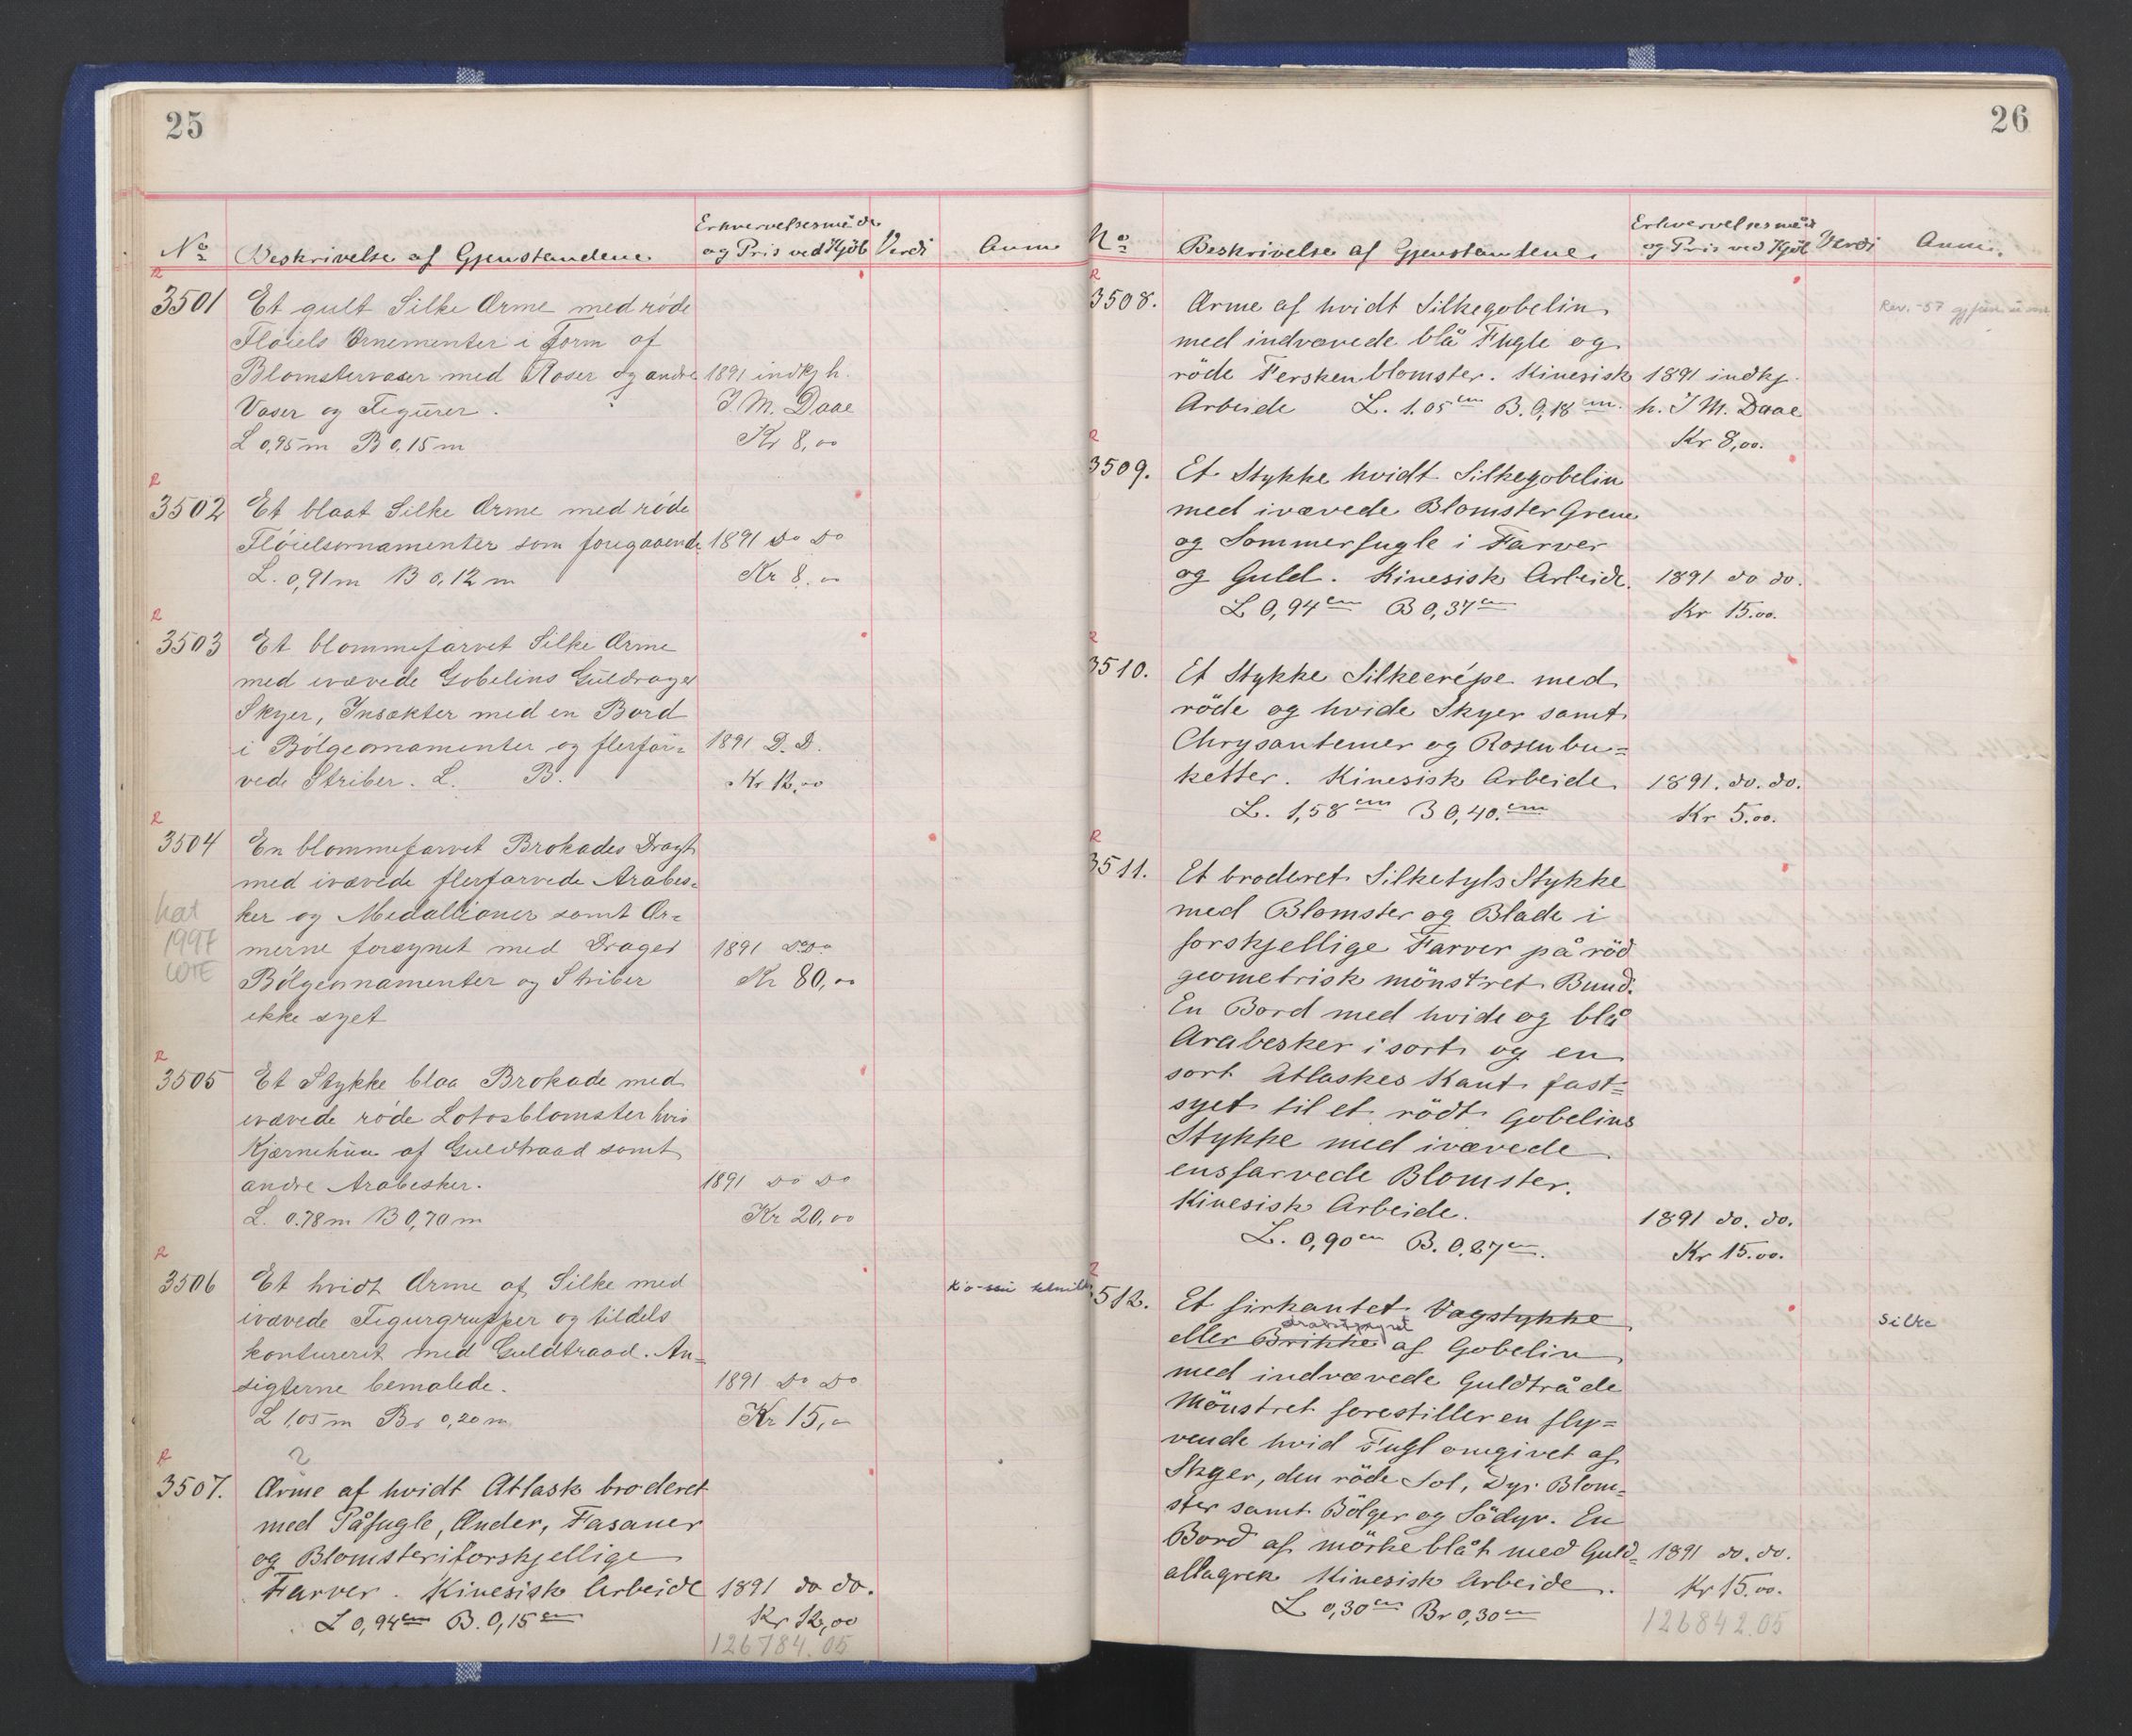 25
No Beskrivelse af Gjenstandene Erhvervelsesmåde og Pris ved Kjöb Verdi Anm
R
3501 Et gult Silke Ærme med røde
Fløiels Ornementer i Form af
Blomstervaser med Roser og andre 1891 indkj h.
Vaser og Figurer. I M. Daae
L 0,95m B 0,15m Kr 8,00
R
3502 Et blaat Silke Ærme med røde
Fløielsornamenter som foregaaende 1891 Do Do
L. 0,91m B 0,12m Kr 8.00
R
3503 Et blommefarvet Silke Ærme
med ivævede Gobelins Guldrager
Skyer, Insækter med en Bord
i Bølgeornamenter og flerfar= 1891 D. D.
vede Striber. L. B. Kr 12,00
R
3504 En blommefarvet Brokades Dragt
med ivævede flerfarvede Arabes=
kat ker og Medallioner samt Ær=
1997 merne forsynet med Drager 1891 DoDo
LOTE Bølgeornamenter og Striber Kr 80,00
ikke syet
R
3505 Et Stykke blaa Brokade med
ivævede røde Lotosblomster hvis
Kjærnehuse af Guldtraad samt
andre Arabesker. 1891 Do Do
L. 0.78m B 0,70m Kr 20,00
R
3506 Et hvidt Ærme af Silke med
ivævede Figurgrupper og tildels
kontureret med Guldtraad. An=
sigterne bemalede. 1891 Do Do
L 1,05m Br 0,20m Kr 15,00
R
3507. Ærme af hvidt Atlask broderet
med Påfugle, Ænder, Fasaner
og Blomster i forskjellige
Farver. Kinesisk Arbeide 1891 do do.
L 0,94cm B. 0,15cm Kr 12,00
126784.05
26
No Beskrivelse af Gjenstandene. Erhvervelsesmåd og Pris ved Kjöb Verdi Anm.
R
3508. Ærme af hvidt Silkegobelin Rev. -57
med indvævede blå Fugle og
röde Ferskenblomster. Kinesisk 1891 indkj.
Arbeide L. 1.05cm B. 0,18cm. h. I M. Daae
Kr 8,00.
R
3509. Et Stykke hvidt Silkegobelin
med ivævede Blomster Grene
og Sommerfugle i Farver
og Guld. Kinesisk Arbeide. 1891 do do.
L 0,94cm B 0,37cm Kr 15.00.
R
3510. Et Stykke Silkecrépe med
röde og hvide Skyer samt
Chrysantemer og Rosenbu=
ketter. Kinesisk Arbeide 1891. do. do.
L. 1,58cm B 0,40.cm Kr 5.00.
R
3511. Et broderet Silketyls Stykke
med Blomster og Blade i
forskjellige Farver på röd
geometrisk mönstret Bund.
En Bord med hvide og blå
Arabesker i sort og en
sort Atlaskes Kant fast=
syet til et rödt Gobelins
Stykke med ivævede
ensfarvede Blomster.
Kinesisk Arbeide. 1891 do. do.
L. 0,90cm B. 0.27cm. Kr 15.00.
R
3512. Et firkantet Vægstykke Silke
eller Brikke af Gobelin
med indvævede Guldtråde
Mönstret forestiller en fly=
vende hvid Fugl omgivet af
Skyer, den röde Sol, Dyr Blom=
ster samt Bölger og Södyr. En
Bord af mörkeblåt med Guld= 1891 do. do.
allagrek Kinesisk Arbeide. Kr 15.00.
L 0,30cm Br 0,30cm 126842.05